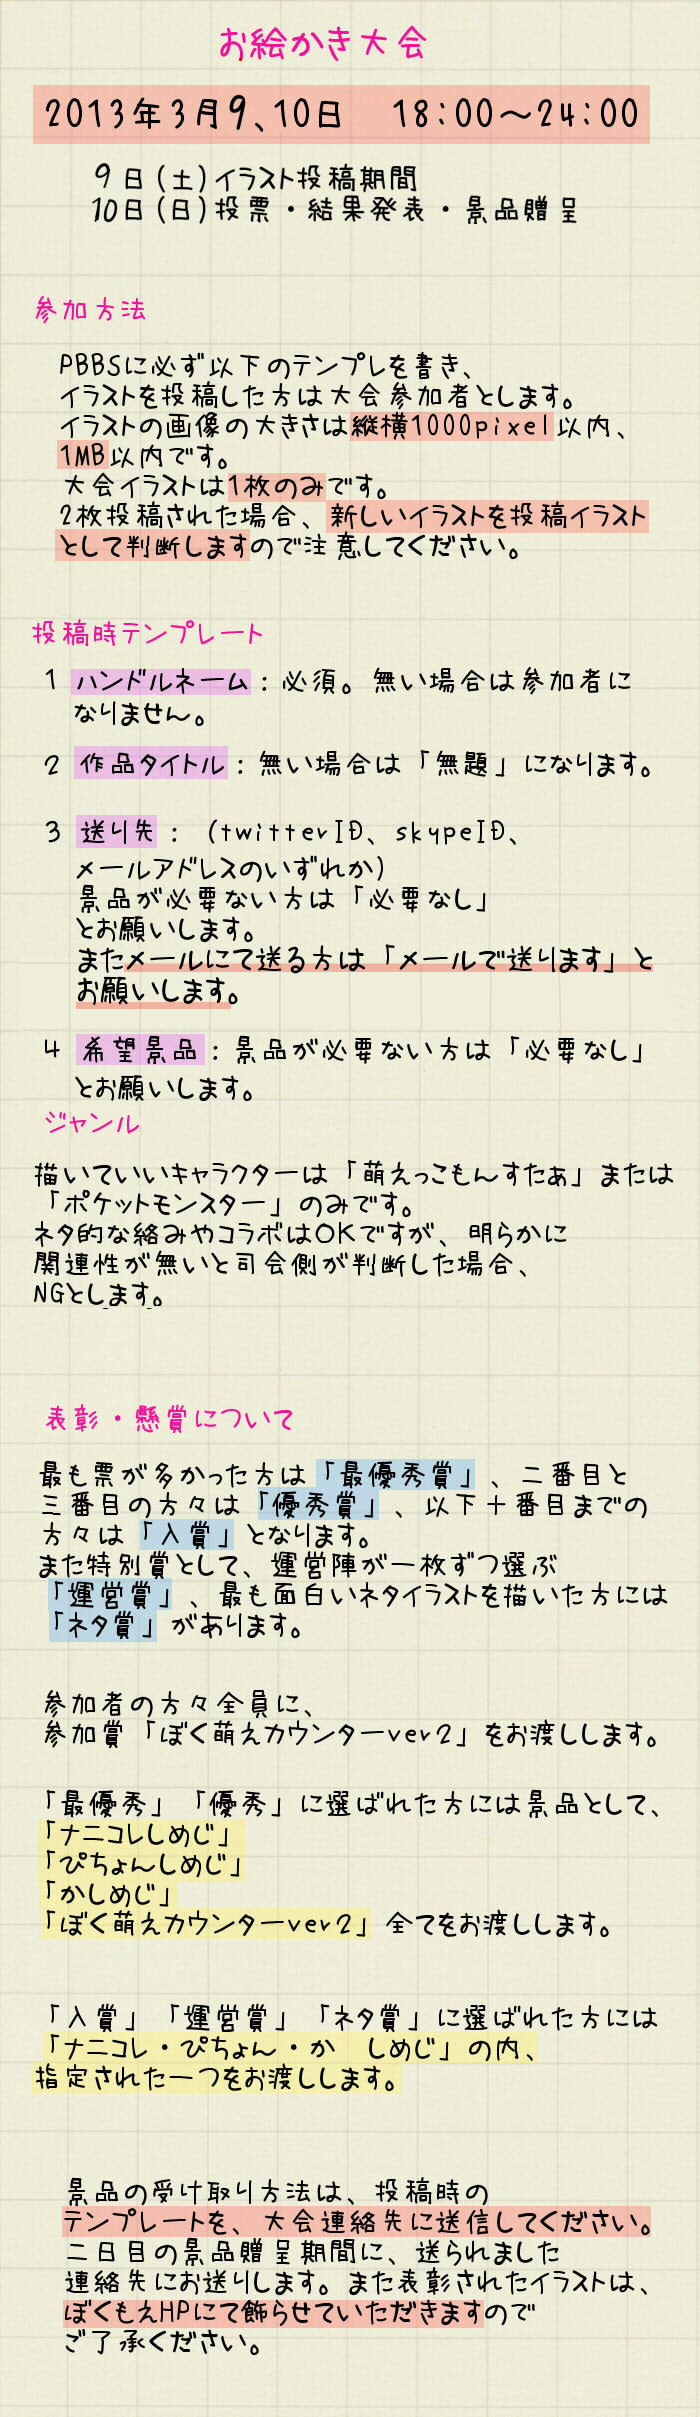 お絵かき大会
2013年3月9、10日　18:00～24:00
9日(土)イラスト投稿期間
10日(日)投票・結果発表・景品贈呈
参加方法
PBBSに必ず以下のテンプレを書き、
イラストを投稿した方は大会参加者とします。
イラストの画像の大きさは縦横1000pixel以内、
1MB以内です。
大会イラストは1枚のみです。
2枚投稿された場合、新しいイラストを投稿イラスト
として判断しますので注意してください。
投稿時テンプレート
1 ハンドルネーム：必須。無い場合は参加者に
なりません。
2 作品タイトル：無い場合は「無題」になります。
3 送り先：(twitterID、skypeID、
メールアドレスのいずれか)
景品が必要ない方は「必要なし」
とお願いします。
またメールにて送る方は「メールで送ります」と
お願いします。
4 希望景品：景品が必要ない方は「必要なし」
とお願いします。
ジャンル
描いていいキャラクターは「萌えっこもんすたぁ」または
「ポケットモンスター」のみです。
ネタ的な絡みやコラボはOKですが、明らかに
関連性が無いと司会側が判断した場合、
NGとします。
表彰・懸賞について
最も票が多かった方は「最優秀賞」、二番目と
三番目の方々は「優秀賞」、以下十番目までの
方々は「入賞」となります。
また特別賞として、運営陣が一枚ずつ選ぶ
「運営賞」、最も面白いネタイラストを描いた方には
「ネタ賞」があります。
参加者の方々全員に、
参加賞「ぼく萌えカウンターver2」をお渡しします。
「最優秀」「優秀」に選ばれた方には景品として、
「ナニコレしめじ」
「ぴちょんしめじ」
「かしめじ」
「ぼく萌えカウンターver2」全てをお渡しします。
「入賞」「運営賞」「ネタ賞」に選ばれた方には
「ナニコレ・ぴちょん・か　しめじ」の内、
指定された一つをお渡しします。
景品の受け取り方法は、投稿時の
テンプレートを、大会連絡先に送信してください。
二日目の景品贈呈期間に、送られました
連絡先にお送りします。また表彰されたイラストは、
ぼくもえHPにて飾らせていただきますので
ご了承ください。